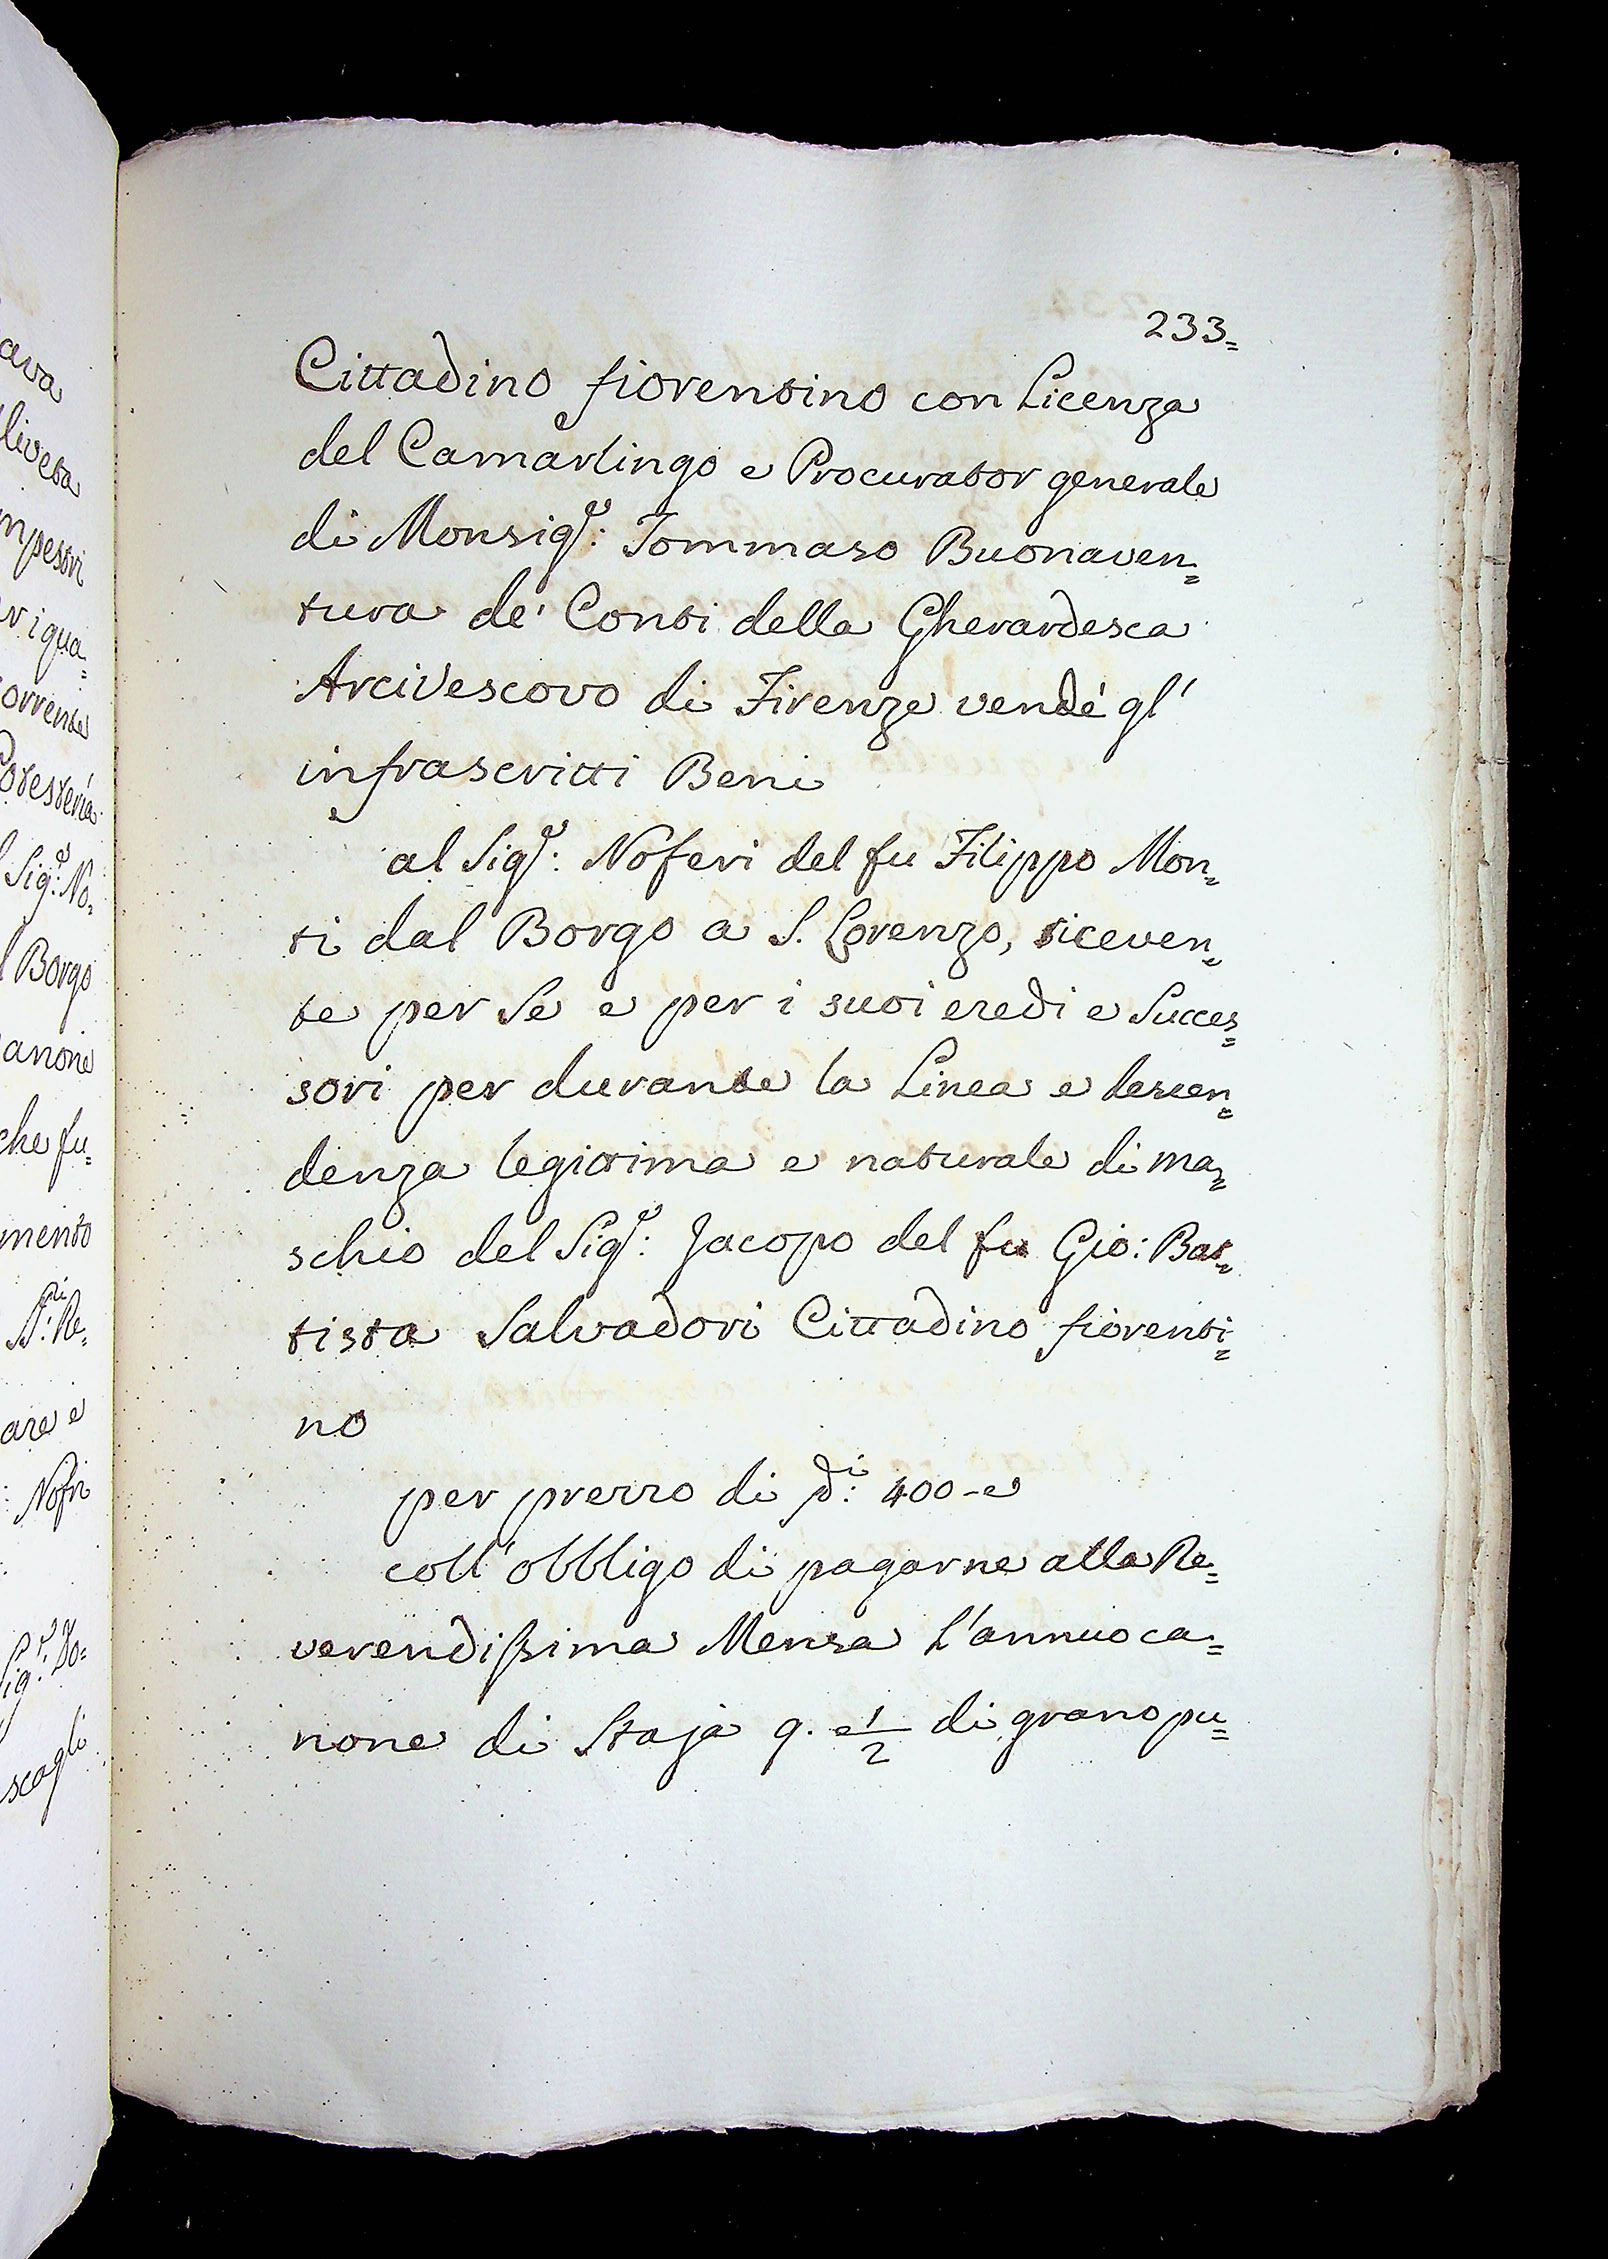 233=
Cittadino fiorentino con Licenza
del Camarlingo e Procurator generale
di Monsigr: Tommaso Buonaven=
tura de' Conti della Gherardesca
Arcivescovo di Firenze vendé gl'
infrascritti Beni
al Sigr: Noferi del fu Filippo Mon=
ti dal Borgo a S. Lorenzo, riceven=
te per Se e per i suoi eredi e Succes=
sori per durante la Linea e descen=
denza legittima e naturale di ma=
schio del Sigr: Jacopo del fu Gio: Bat=
tista Salvadori Cittadino fiorenti=
no
per prezzo di di: 400 - e
coll'obbligo di pagarne alla Re=
verendissima Mensa L'annuo ca=
none di Staja 9. e 1/2 di grano pu=
ava
liveta
mpestri
r i qua=
orrente
Potesteria
Sigr: No=
l Borgo
anone
che fu=
mento
di: Re=
are e
Nofri
igr: Do=
scagli